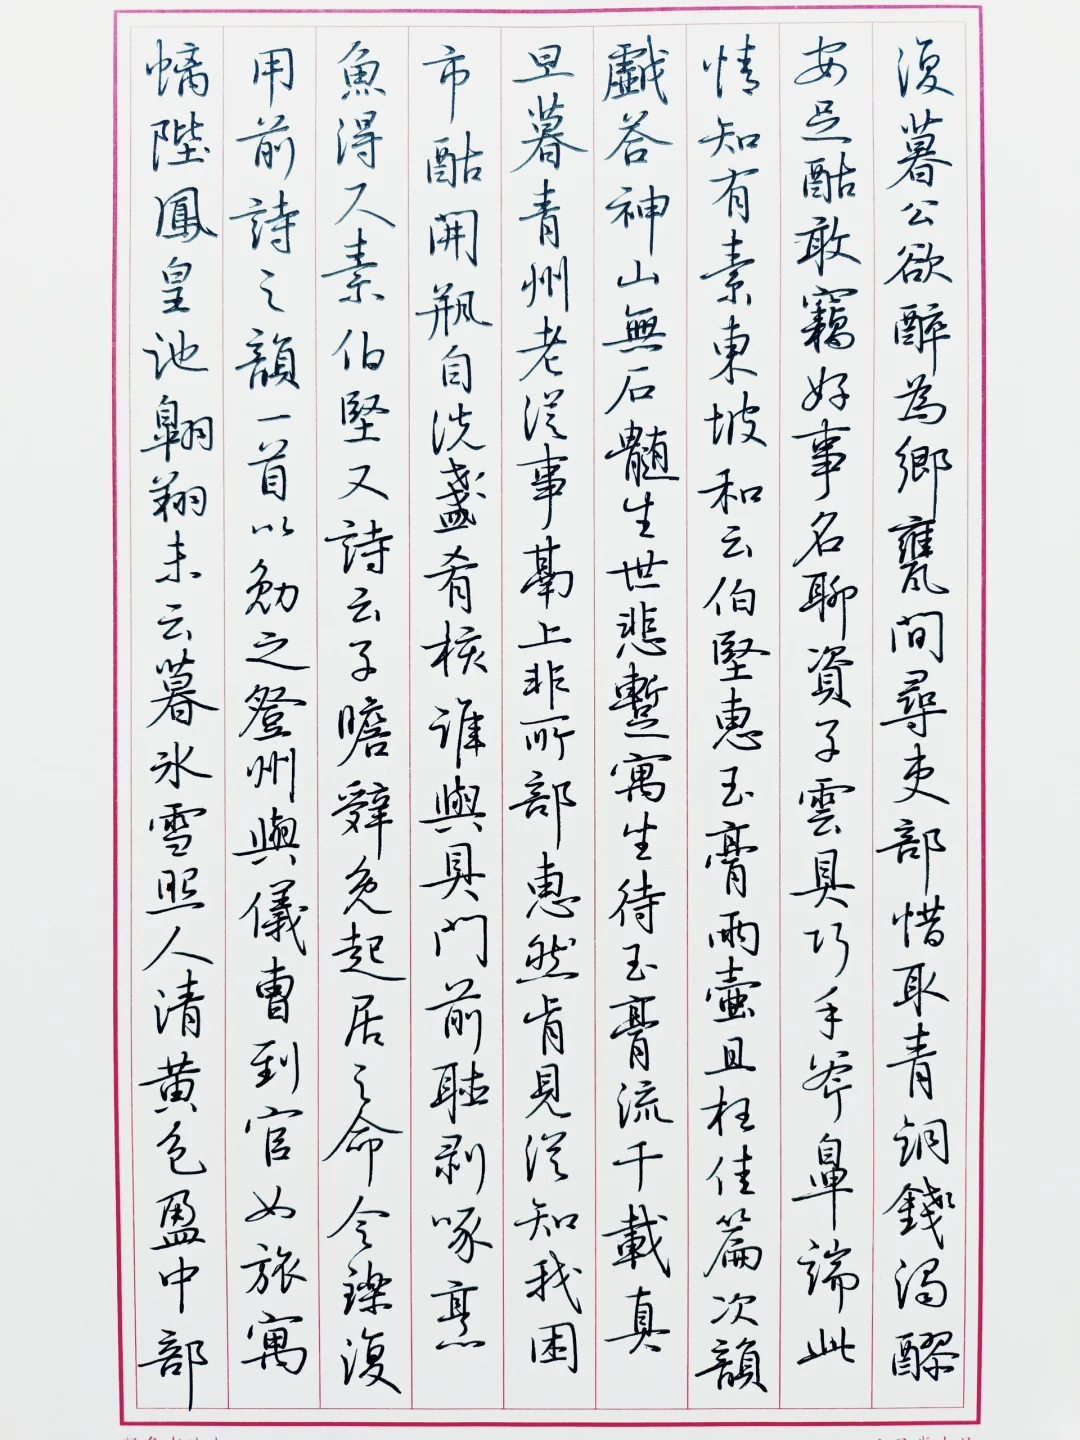 復暮公欲醉為鄉甕間尋吏部惜取青銅錢濁醪
安足酤敢竊好事名聊資子雲具巧手斧鼻端此
情知有素東坡和云伯堅惠玉膏兩壺且枉佳篇次韻
戲答神山無石髓生世悲暫寓坐待玉膏流千載真
旦暮青州老從事鬲上非所部惠然肯見從知我困
市酤開瓶自洗盞肴核誰與具門前聽剥啄烹
魚得尺素伯堅又詩云子瞻辭免起居之命令鑠復
用前詩之韻一首以勉之登州與儀曹到官如旅寓
螭陛鳳皇池翱翔未云暮冰雪照人清黄色盈中部